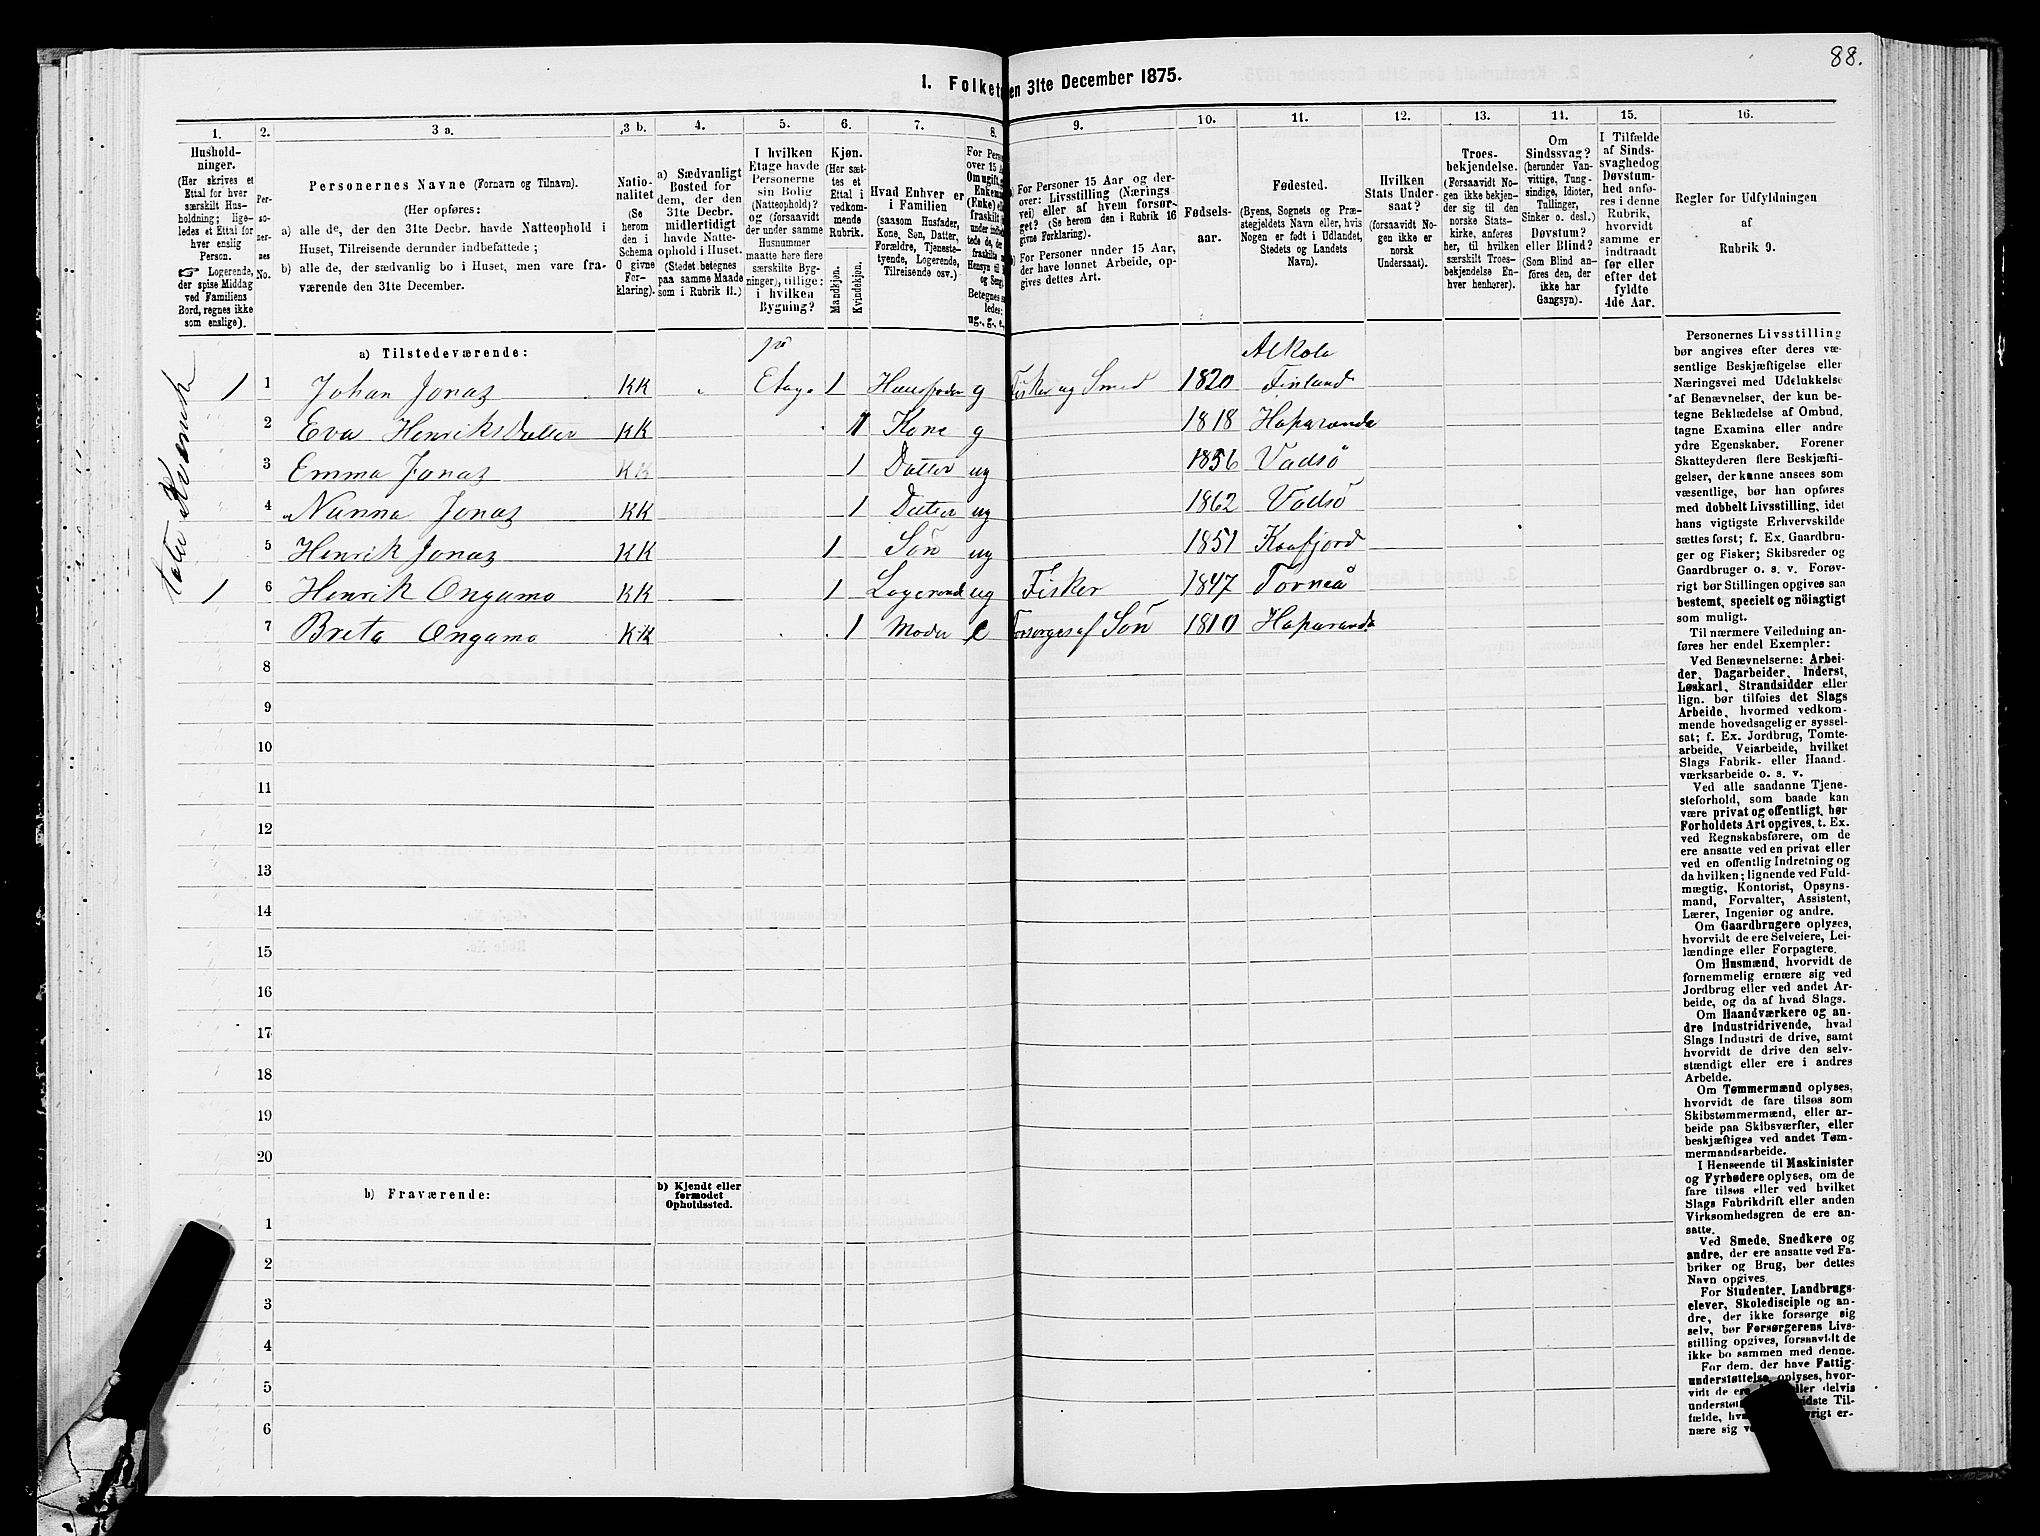 88.
1. Folket en 31te December 1875.
1. 2. 3 a. 3 b. 4. 5. 6. 7. 8. 9. 10. 11. 12. 13. 14. 15. 16.
Husholdninger. (Her skrives et Ettal for hver særskilt Husholdning; ligeledes et Ettal for hver enslig Person. ☞ Logerende, der spise Middag ved Familiens Bord, regnes ikke som enslige).
Personernes No.
Personernes Navne (Fornavn og Tilnavn).
(Her opføres:
a) alle de, der den 31te Decbr. havde Natteophold i Huset, Tilreisende derunder indbefattede;
b) alle de, der sædvanlig bo i Huset, men vare fraværende den 31te December.
Nationalitet (Se herom den i Schema 0 givne Forklaring).
a) Sædvanligt Bosted for dem, der den 31te Decbr. midlertidigt havde Natteophold i Huset. (Stedet betegnes paa samme Maade som i Rubrik 11.)
I hvilken Etage havde Personerne sin Bolig (Natteophold)? og (forsaavidt der under samme Husnummer maatte høre flere særskilte Bygninger), tillige: i hvilken Bygning?
Kjøn. (Her sættes et Ettal i vedkommende Rubrik.
Mandkjøn. Kvindekjøn.
Hvad Enhver er i Familien (saasom Husfader, Kone, Søn, Datter, Forældre, Tjenestetyende, Logerende, Tilreisende osv.)
For Perso over 15 A Om ugift, g Enkem (Enke) el fraskilt
Betegnes s ledes: ug., g., e.,
a) For Personer 15 Aar og derover: Livsstilling (Næringsvei) eller af hvem forsørget? (Se herom den i Rubrik 16 givne Forklaring).
b) For Personer under 15 Aar, der have lønnet Arbeide, opgives dettes Art.
Fødselsaar.
Fødested. (Byens, Sognets og Præstegjeldets Navn eller, hvis Nogen er født i Udlandet, Stedets og Landets Navn).
Hvilken Stats Undersaat? (forsaavidt Nogen ikke er norsk Undersaat).
Troesbekjendelse. (Forsaavidt Nogen ikke bekjender sig til den norske Statskirke, anføres her, til hvilken særskilt Troesbekjendelse Enhver henhører).
Om Sindssvag? (herunder Vanvittige, Tungsindige, Idioter, Tullinger, Sinker o. desl.) Døvstum? eller Blind? (Som Blind anføres den, der ikke har Gangsyn).
I Tilfælde af Sindssvaghed og Døvstumhed anføres i denne Rubrik, hvorvidt samme er indtraadt før eller efter det fyldte 4de Aar.
Regler for Udfyldningen af Rubrik 9.
a) Tilstedeværende: på Alkola
1 1 Johan Jonas KK Etage 1 Huusfader g Fisker og Smed 1820 Finland
2 Eva Henriksdatter KK 1 Kone g 1818 Haparanda
3 Emma Jonas KK 1 Datter ug 1856 Vadsö
4 Nanna Jonas KK 1 Datter ug 1862 Vadsö
5 Henrik Jonas KK 1 Sön ug 1851 Kaafjord
1 6 Henrik Ongamo KK 1 Logerend ug Fisker 1847 Torneå
7 Breta Ongamo KK 1 Moder e Forsörges af Sön 1810 Haparanda
8
9
10
11
12
13
14
15
16
17
18
19
20
b) Fraværende: b) Kjendt eller formodet Opholdssted.
1
2
3
4
5
6
Personernes Livsstilling
bør angives efter deres væ-
sentlige Beskjæftigelse eller
Næringsvei med Udelukkelse
af Benævnelser, der kun be-
tegne Beklædelse af Ombud,
tagne Examina eller andre
ydre Egenskaber. Forener
Skatteyderen flere Beskjæfti-
gelser, der kunne ansees som
væsentlige, bør han opføres
med dobbelt Livsstilling, idet
hans vigtigste Erhvervskilde
sættes først; f. Ex. Gaardbru-
ger og Fisker; Skibsreder og
Gaardbruger o. s. v. Forøv-
rigt bør Stillingen opgives saa
bestemt, specielt og nöiagtigt
som muligt.
Til nærmere Veiledning an-
føres her endel Exempler:
Ved Benævnelserne: Arbei-
der, Dagarbeider, Inderst,
Løskarl, Strandsidder eller
lign. bør tilføies det Slags
Arbeide, hvormed vedkom-
mende hovedsagelig er syssel-
sat; f. Ex. Jordbrug, Tomte-
arbeide, Veiarbeide, hvilket
Slags Fabrik- eller Haand-
værksarbeide o. s. v.
Ved alle saadanne Tjene-
steforhold, som baade kan
være privat og offentligt, bør
Forholdets Art opgives, t. Ex.
ved Regnskabsførere, om de
ere ansatte ved en privat eller
ved en offentlig Indretning og
da hvilken; lignende ved Fuld-
mægtig, Kontorist, Opsyns-
mand, Forvalter, Assistent,
Lærer, Ingeniør og andre.
Om Gaardbrugere oplyses,
hvorvidt de ere Selveiere, Lei-
lændinge eller Forpagtere.
Om Husmænd, hvorvidt de
fornemmelig ernære sig ved
Jordbrug eller ved andet Ar-
beide, og da af hvad Slags.
Om Haandværkere og an-
dre Industridrivende, hvad
Slags Industri de drive, samt
hvorvidt de drive den selv-
stændigt eller ere i andres
Arbeide.
Om Tømmermænd oplyses,
hvorvidt de fare tilsøs som
Skibstømmermænd, eller ar-
beide paa Skibsværfter, eller
beskjæftiges ved andet Tøm-
mermandsarbeide.
I Henseende til Maskinister
og Fyrbødere oplyses, om de
fare tilsøs eller ved hvilket
Slags Fabrikdrift eller anden
Virksomhedsgren de ere an-
satte.
Ved Smede, Snedkere og
andre, der ere ansatte ved Fa-
briker og Brug, bør dettes
Navn opgives.
For Studenter, Landbrugs-
elever, Skoledisciple og an-
dre, der ikke forsørge sig
selv, bør Forsørgerens Livs-
stilling opgives, forsaavidt de
ikke bo sammen med denne.
For dem, der have Fattig-
understøttelse, oplyses, hvor-
vidt de ere eller delvis
understøt idste Til-
fælde, hv vrigt er-
nære sig v